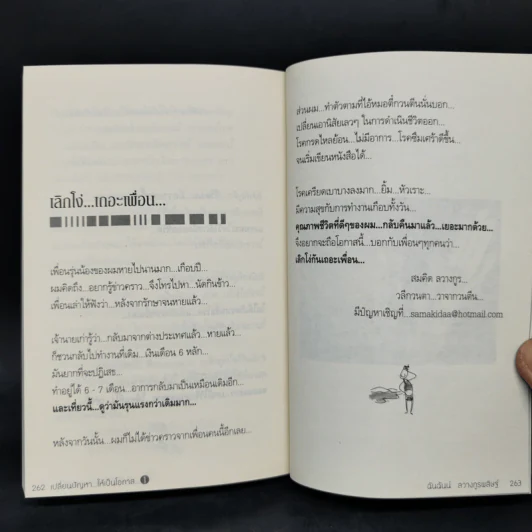 เลิกโง่...เถอะเพื่อน...
เพื่อนรุ่นน้องของผมหายไปนานมาก...เกือบปี...
ผมคิดถึง...อยากรู้ข่าวคราว...จึงโทรไปหา...นัดกินข้าว...
เพื่อนเล่าให้ฟังว่า...หลังจากรักษาจนหายแล้ว...
เจ้านายเก่ารู้ว่า...กลับมาจากต่างประเทศแล้ว...หายแล้ว...
ก็ชวนกลับไปทำงานที่เดิม...เงินเดือน 6 หลัก...
มันยากที่จะปฏิเสธ...
ทำอยู่ได้ 6 - 7 เดือน...อาการกลับมาเป็นเหมือนเดิมอีก...
และเที่ยวนี้...ดูว่ามันรุนแรงกว่าเดิมมาก...
หลังจากวันนั้น...ผมก็ไม่ได้ข่าวคราวจากเพื่อนคนนี้อีกเลย...
262 เปลี่ยนปัญหา...ให้เป็นโอกาส... 1
ส่วนผม...ทำตัวตามที่ไอ้หมอตี๋กวนตีนนั่นบอก...
เปลี่ยนเอานิสัยเลวๆ ในการดำเนินชีวิตออก...
โรคกรดไหลย้อน...ไม่มีอาการ...โรคซึมเศร้าดีขึ้น...
จนเริ่มเขียนหนังสือได้...
โรคเครียดเบาบางลงมาก...ยิ้ม...หัวเราะ...
มีความสุขกับการทำงานเกือบทั้งวัน...
คุณภาพชีวิตที่ดีๆของผม...กลับคืนมาแล้ว...เยอะมากด้วย...
จึงอยากจะถือโอกาสนี้...บอกกับเพื่อนๆทุกคนว่า...
เลิกโง่กันเถอะเพื่อน...
สมคิด ลวางกูร...
วลีกวนตา...วาจากวนตีน...
มีปัญหาเชิญที่...samakidaa@hotmail.com
ฉันฉันน์ ลวางกูรพสิษฐ์ 263